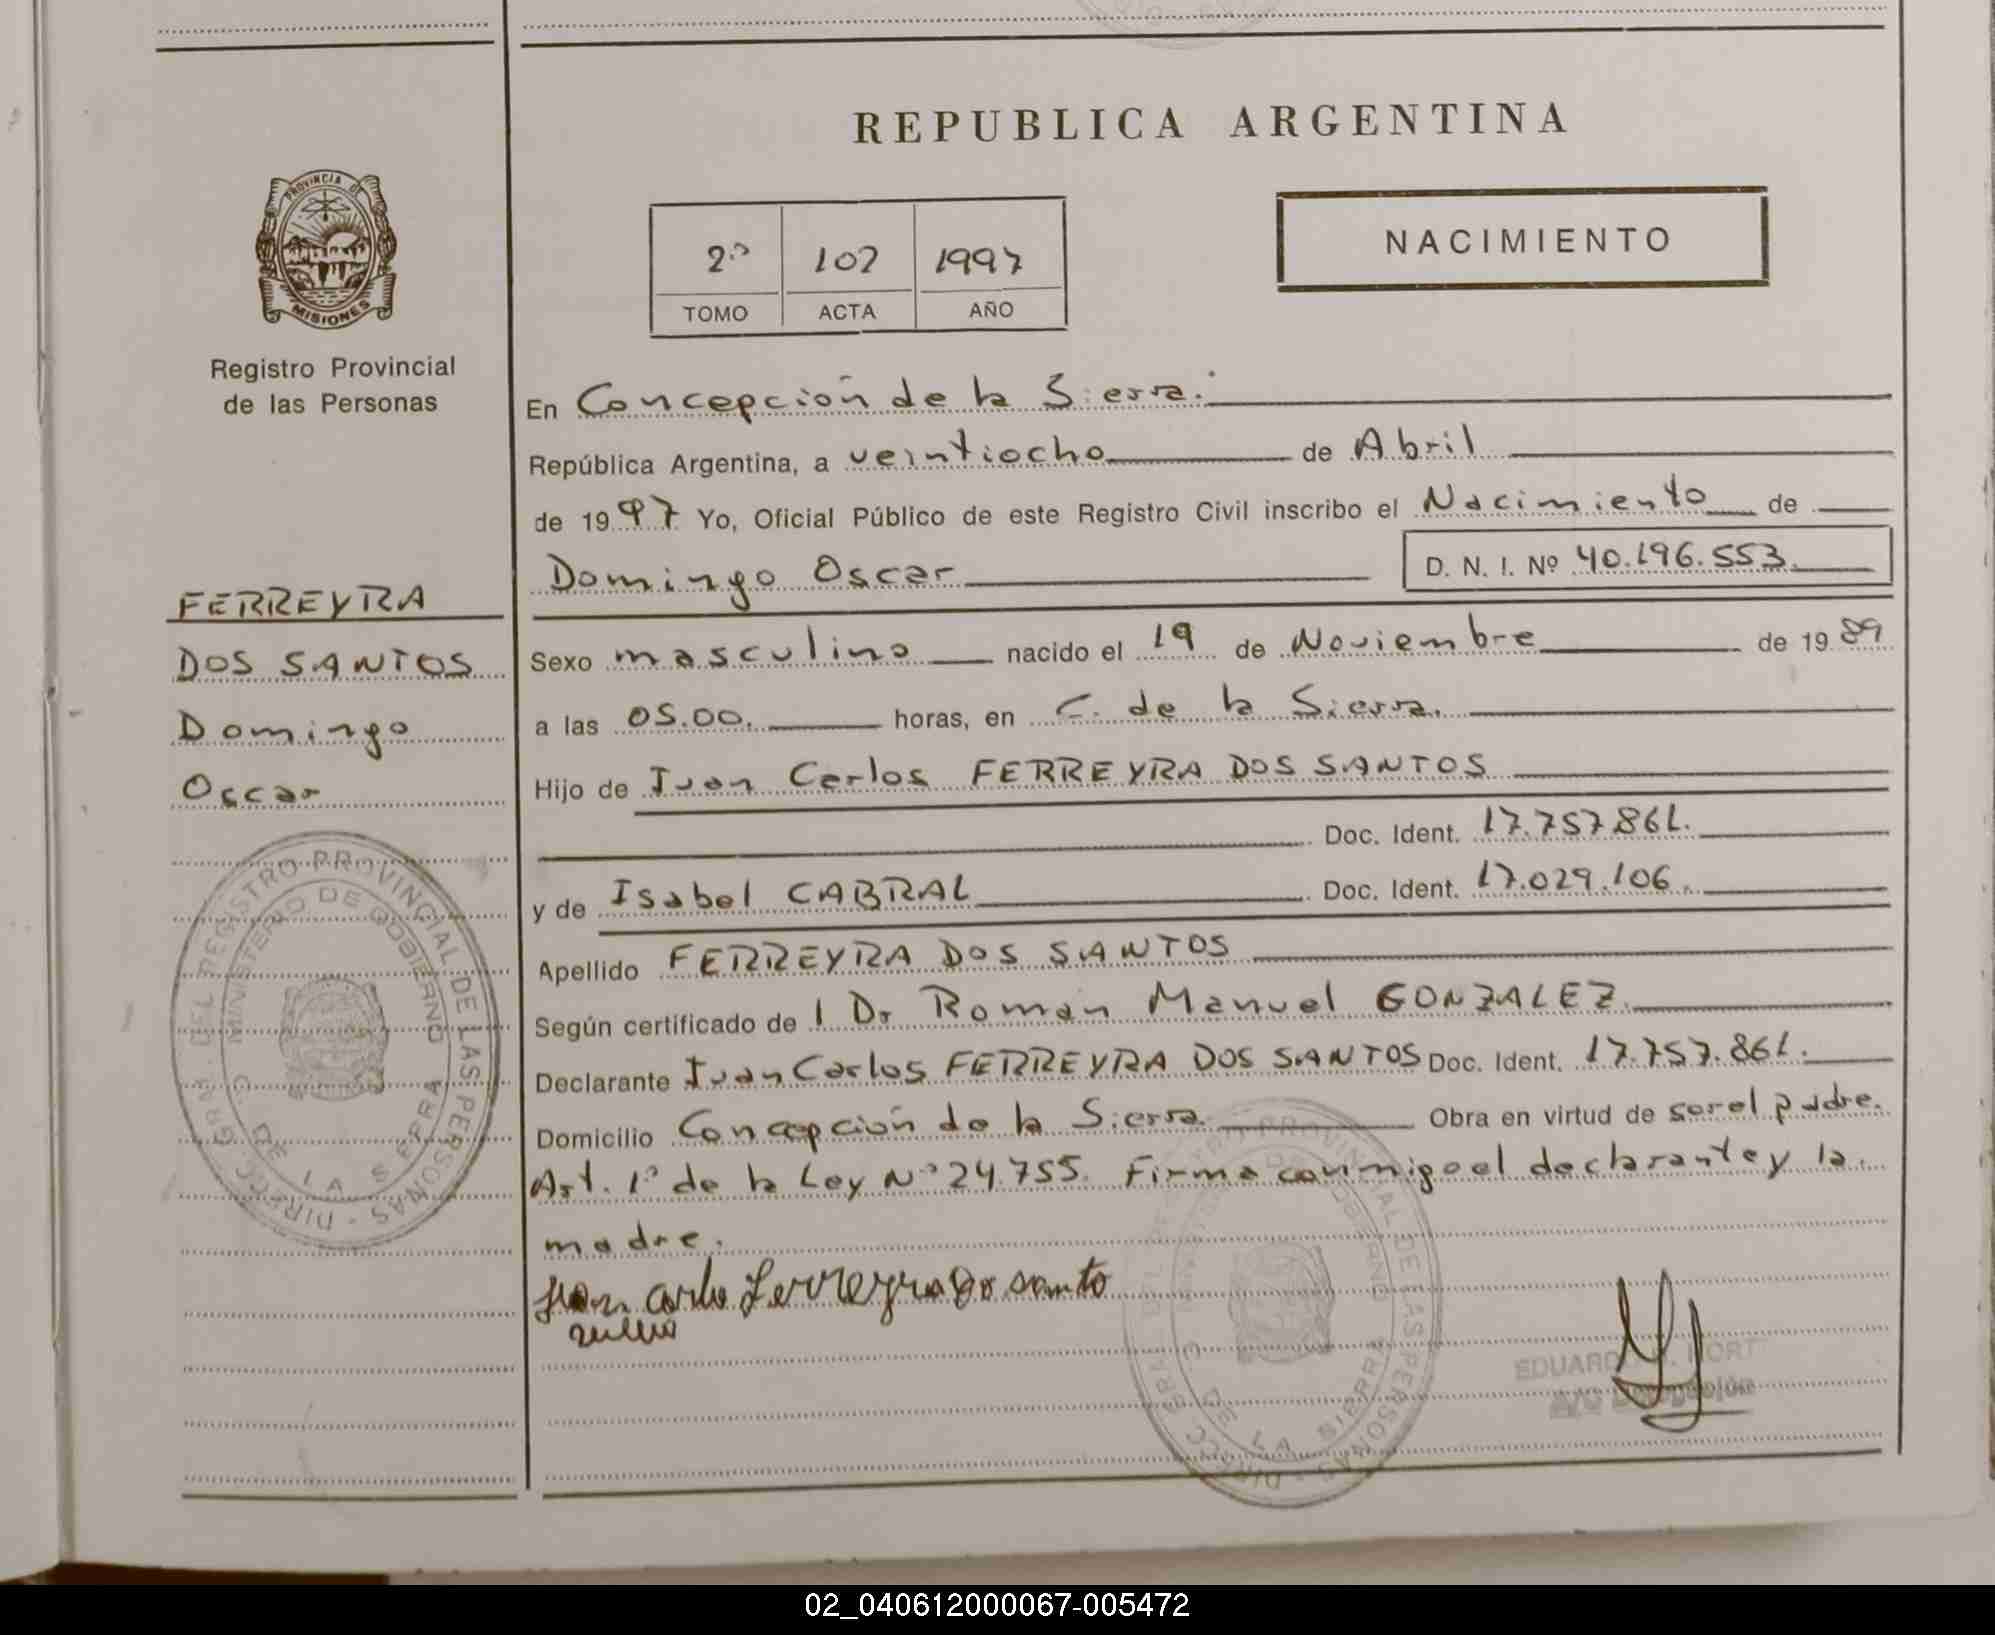 REPUBLICA ARGENTINA
NACIMIENTO
2º 102 1997
TOMO ACTA AÑO
PROVINCIA DE
MISIONES
Registro Provincial
de las Personas
FERREYRA
DOS SANTOS
Domingo
Oscar
En Concepción de la Sierra.
República Argentina, a veintiocho de Abril
de 1997 Yo, Oficial Público de este Registro Civil inscribo el Nacimiento de
Domingo Oscar D. N. I. Nº 40.196.553
Sexo masculino nacido el 19 de Noviembre de 1989
a las 05.00. horas, en C. de la Sierra.
Hijo de Juan Carlos FERREYRA DOS SANTOS
Doc. Ident. 17.757.861.
y de Isabel CABRAL Doc. Ident. 17.029.106.
Apellido FERREYRA DOS SANTOS
Según certificado de l Dr Román Manuel GONZALEZ.
Declarante Juan Carlos FERREYRA DOS SANTOS Doc. Ident. 17.757.861.
Domicilio Concepción de la Sierra. Obra en virtud de ser el padre.
Art. 1º de la Ley Nº 24.755. Firma conmigo el declarante y la
madre.
Juan Carlo Ferreyra Do santo
DIRECC. GRAL. DEL REGISTRO PROVINCIAL DE LAS PERSONAS
MINISTERIO DE GOBIERNO
C. DE LA SIERRA
REGISTRO PROVINCIAL DE LAS PERSONAS
C. DE LA SIERRA
EDUARDO
02_040612000067-005472